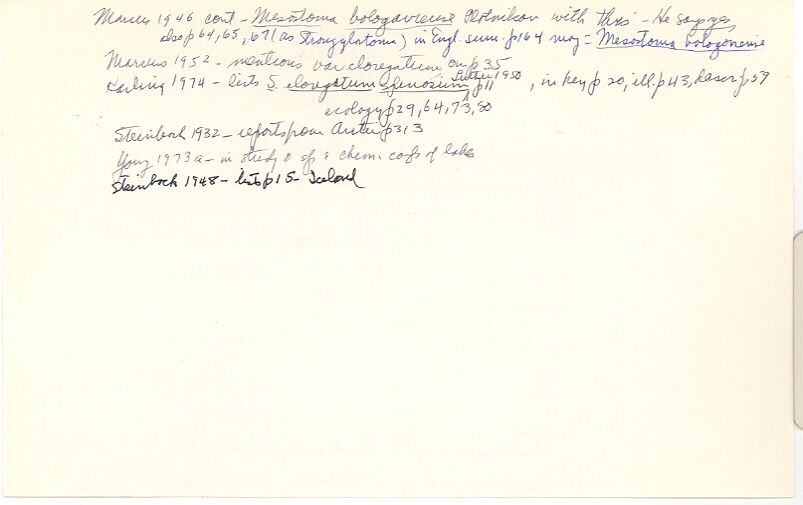 Marcus 1946 cont - Mesostoma bologoviense Plotnikow with this - He says yes,
also p 64, 65, 67 (as Strongylostoma) in Engl. summ. p 164 may = Mesostoma bologonense
Marcus 1952 - mentions var elongatum on p 35
Karling 1974 - lists S. elongatum spinosum Luther 1950 p 11, in key p 20, ill. p 43, descr p. 59
ecology p 29, 64, 73, 80
Steinböck 1932 - reports from p 313
Young 1973a - in study of sp & chem. of lakes
Steinböck 1948 - lists p 15 - Iceland